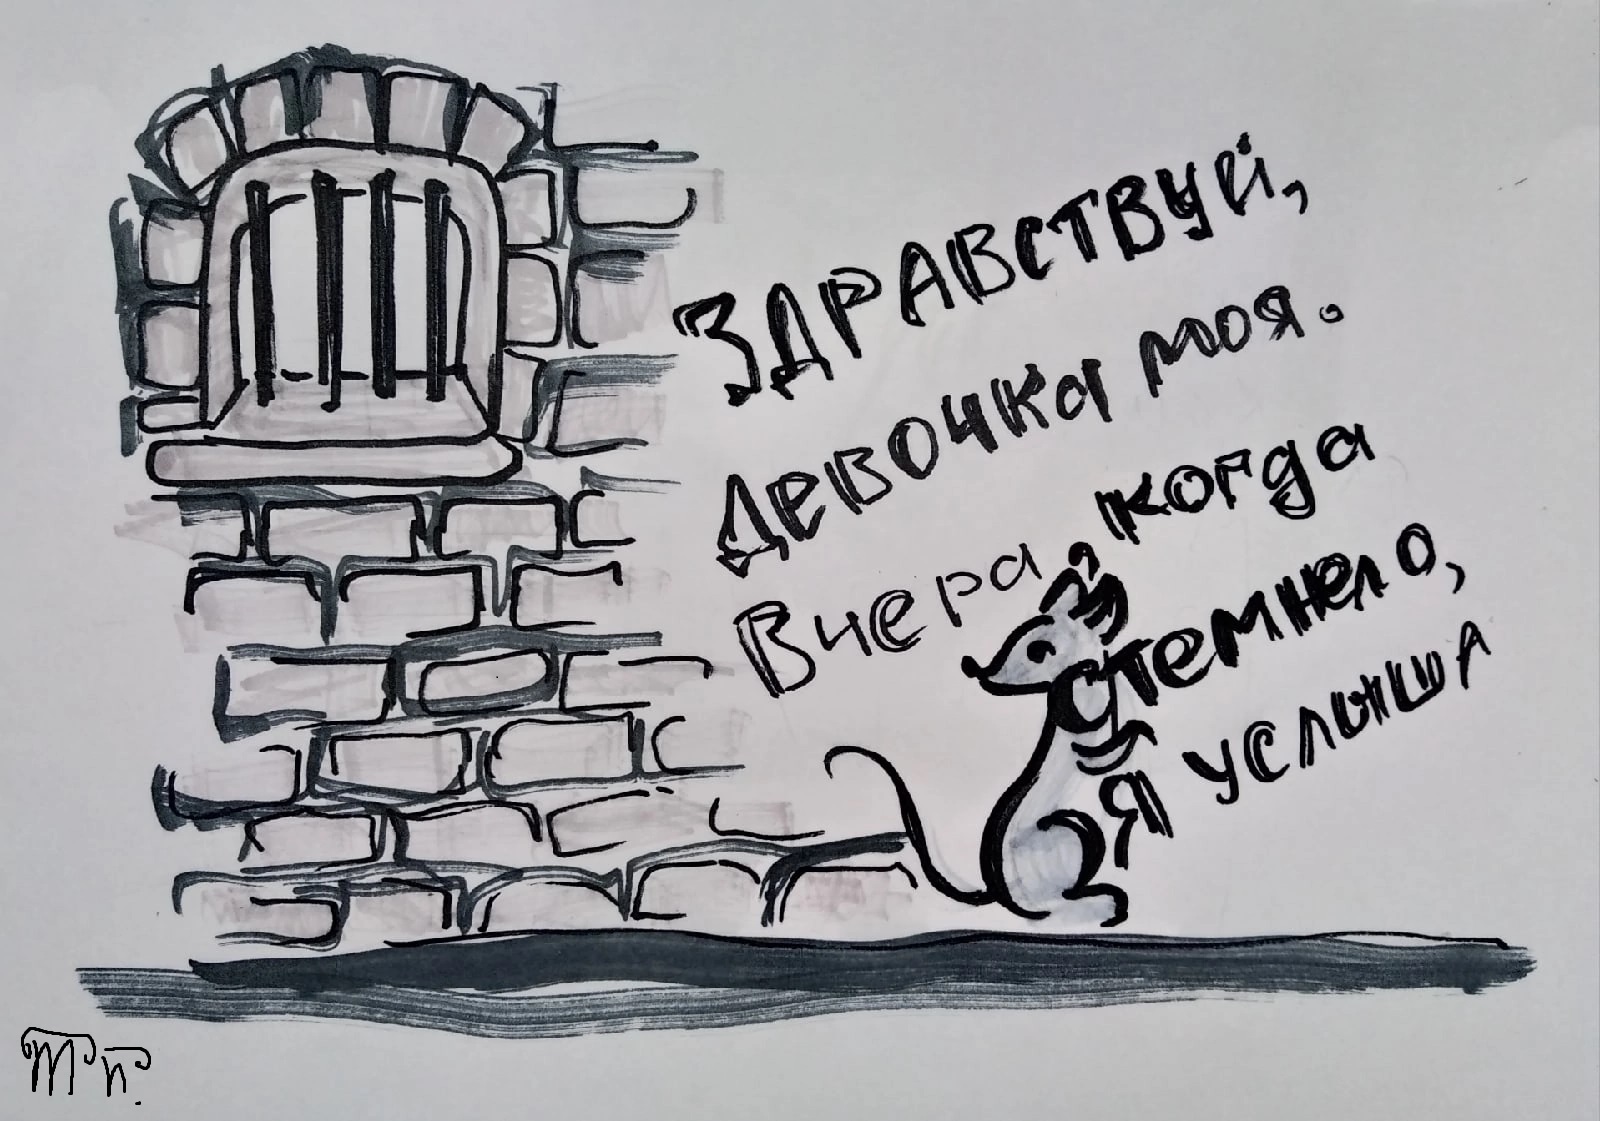 ЗДРАВСТВУЙ,
ДЕВОЧКА МОЯ.
Вчера, когда
стемнело,
Я услыша
Тп.